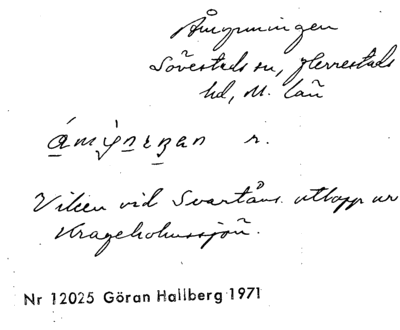 Åmynningen
Sövestads sn, Herrestads
hd, M. län
r.
Viken vid Svartåns utlopp ur
Krageholmssjön.
Nr 12025 Göran Hallberg 1971